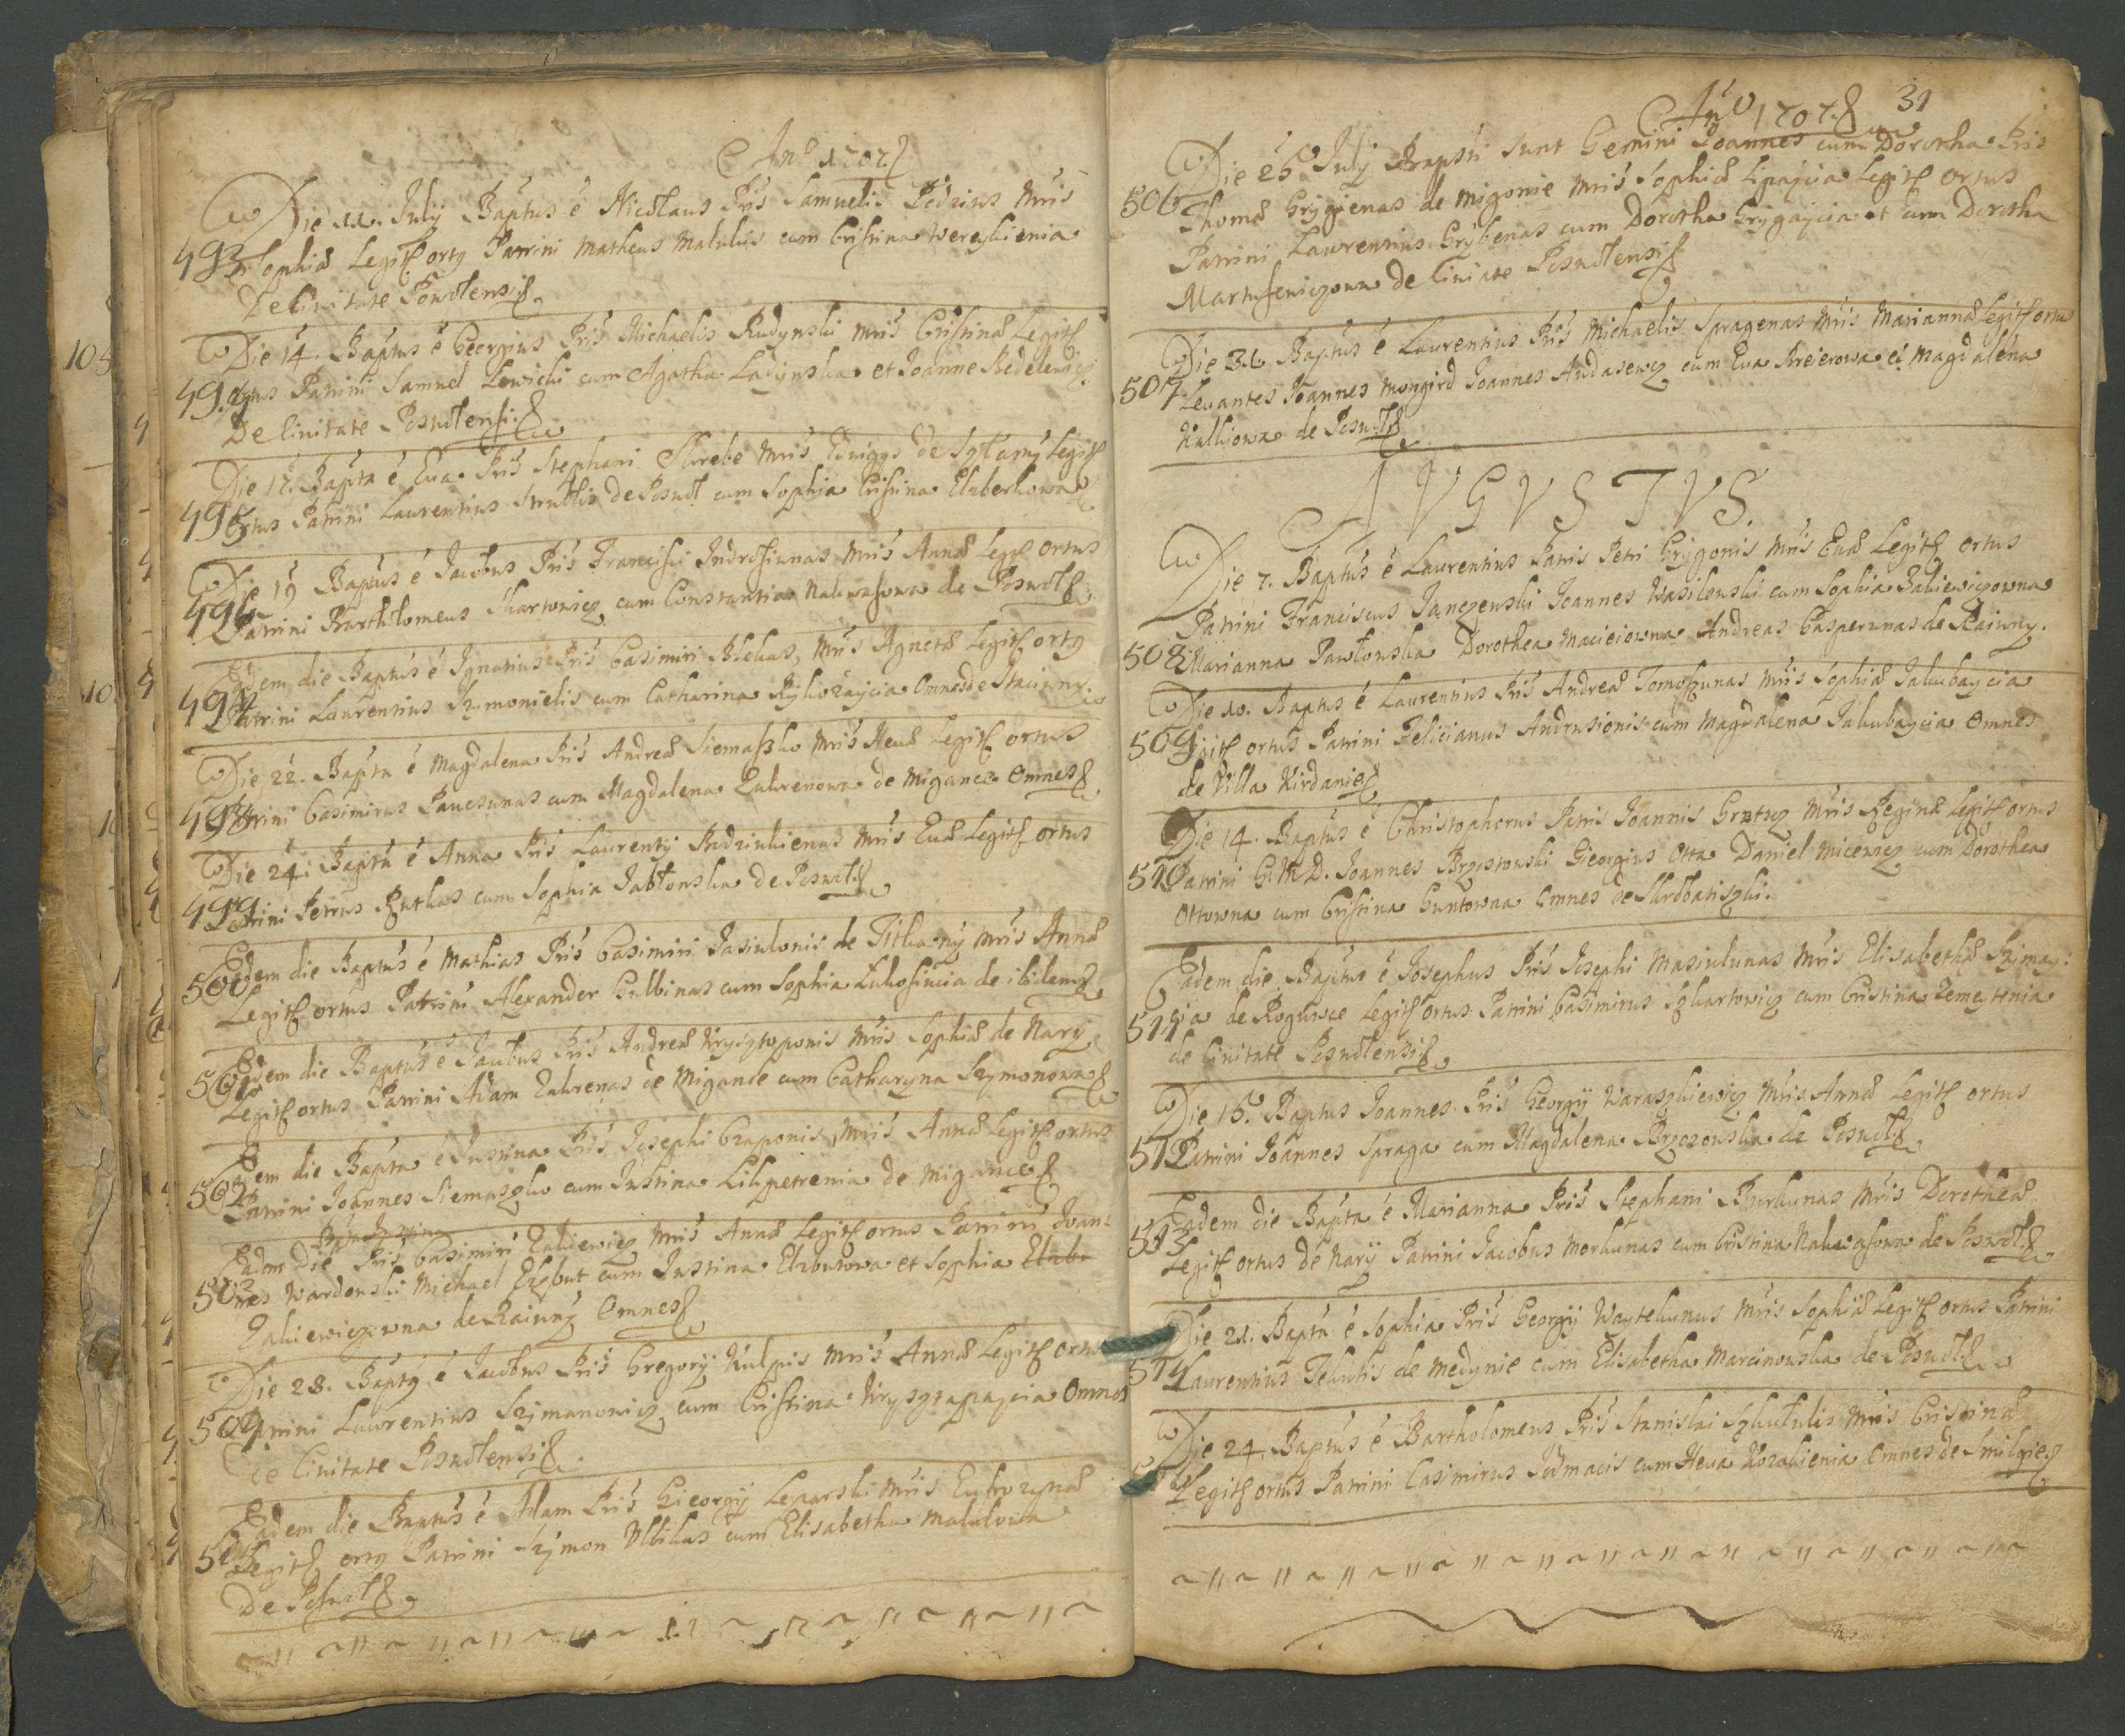 Anno 1707
Die 11. July Baptus é Nicolaus Pris Samuelis Pidzius Mris
493 Sophiæ Legit ortg Patrini Matheus Malulis cum Cristina Wereykienia
De Civitate Poswolensi
Die 14. Baptus é Georgius Pris Michaelis Rudynski Mris Cristinæ Legit
494 ortus Patrini Samuel Lowicki cum Agatha Ladynska et Joanne Bedelewicz
De Civitate Poswolensi
Die 17. Bapta é Eua Pris Stephani Mris Eduiggs de Legit
495 ortus Patrini Laurentius de Poswol cum Sophia Cristina Elzberkowa
Die 19 Baptus é Jacobus Pris Francisci Androsiunas Mris Annæ Legit ortus
496 Patrini Bartholomeus Skartowicz cum Constantia Nakwasowa de Poswol
Eadem die Baptus é Ignatius Pris Casimiri Blekas, Mris Agnetæ Legit ortg
497 Patrini Laurentius Szymonielis cum Catharina Omnes de Staciuny
Die 22. Bapta é Magdalena Pris Andreæ Siemaszko Mris Heuæ Legit ortus
498 Patrini Casimirus Pauesunas cum Magdalena Zakrenowa de Migance Omnes
Die 24. Bapta é Anna Pris Laurentÿ Budziukienas Mris Euæ Legit ortus
499 Patrini Petrus Rutkas cum Sophia Jabłonska de Poswol
500 Eadem die Baptus é Mathias Pris Casimiri Jasiulonis de Mris Annæ
Legit ortus Patrini Alexander Gulbinas cum Sophia de ibidem
501 Eadem die Baptus é Jacobus Pris Andreæ Krysztoponis Mris Sophiæ de Narÿ
Legit ortus Patrini Adam Zakrenas de Migance cum Catharyna Szymonowna
502 Eadem die Bapta é Justina Pris Josephi Czaponis Mris Annæ Legit ortus
Patrini Joannes Siemaszko cum Justina Lilipetrenia de Migance
Bapta Justina
Eadem Die Pris Casimiri Zakiewicz Mris Annæ Legit ortus Patrini Joan
503 nes Wardonski Michael Elzbut cum Justina Elzbutowa et Sophia Elzbu
Zakiewiczowna de Raiuny Omnes
Die 28. Baptg é Jacobus Pris Gregorÿ Kulpis Mris Annæ Legit ortus
504 Patrini Laurentius Szymanowicz cum Cristina Krysztapaycia Omnes
de Civitate Poswolensi
Eadem die Baptus é Adam Pris Gieorgÿ Leparski Mris Eufrozynæ
505 Legit ortg Patrini Szymon Ulbikas cum Elisabetha Malulowa
De Poswol
Anno 1707 31
Die 26 July Bapsti sunt Gemini Joannes cum Dorotha Pris
506 Thomæ Grygienas de Migonie Mris Sophiæ Lipaycia Legit ortus
Patrini Laurentius Grybenas cum Dorotha Grygaycia et cum Dorotha
Martuseniczowa de Civiate Poswolensi
Die 31 Baptus é Laurentius Pris Michaelis Spragenas Mris Mariannæ Legit ortus
507 Levantes Joannes Mongird Joannes Andasewcz cum Eua Breierowa et Magdalena
Kulkiowa de Poswol
AVGVSTVS.
Die 7. Baptus é Laurentius Patris Petri Grygonis Mris Euæ Legit ortus
Patrini Franciscus Janczewski Joannes Wasilewski cum Sophia Zakiewiczowna
508 Marianna Pawłowska Dorothea Macieiowna Andreas Casperunas de Raiuny.
Die 10. Baptus é Laurentius Pris Andreæ Tomoszunas Mris Sophiæ Jakubaycia
509 Legit ortus Patrini Felicianus Andrusionis cum Magdalena Jakubaycia Omnes
de Villa Kirdanie
Die 14. Baptus é Christopherus Patris Joannis Gratcz Mris Reginæ Legit ortus
510 Patrini G. M. D. Joannes Brzostowski Georgius Otta Daniel Micewicz cum Dorothea
Ottowna cum Cristina Guntowna Omnes de Skrobatiszki.
Eadem die Baptus é Josephus Pris Josephi Masiulunas Mris Elisabethæ Szymay:
511 cia de Rogluwce Legit ortus Patrini Casimirus Szkartowicz cum Cristina Remeytenia
de Civitate Poswolensi
Die 15. Baptus Joannes Pris Georgÿ Waraszkiewicz Mris Annæ Legit ortus
512 Patrini Joannes Spraga cum Magdalena Brzozowska de Poswol
513 Eadem die Bapta é Marianna Pris Stephani Burkunas Mris Dorotheæ
Legit ortus de Narÿ Patrini Jacobus Morkunas cum Cristina Nakwasowa de Poswol
Die 21. Bapta é Sophia Pris Georgÿ Waytekunus Mris Sophiæ Legit ortus Patrini
514 Laurentius Tekutis de Medynie cum Elisabetha Marcinowska de Poswol
Die 24. Baptus é Bartholomeus Pris Stanislai Szkutulis Mris Cristinæ
Legit ortus Patrini Casimirus Tumacis cum Heua Kozakienia Omnes de Smilgie